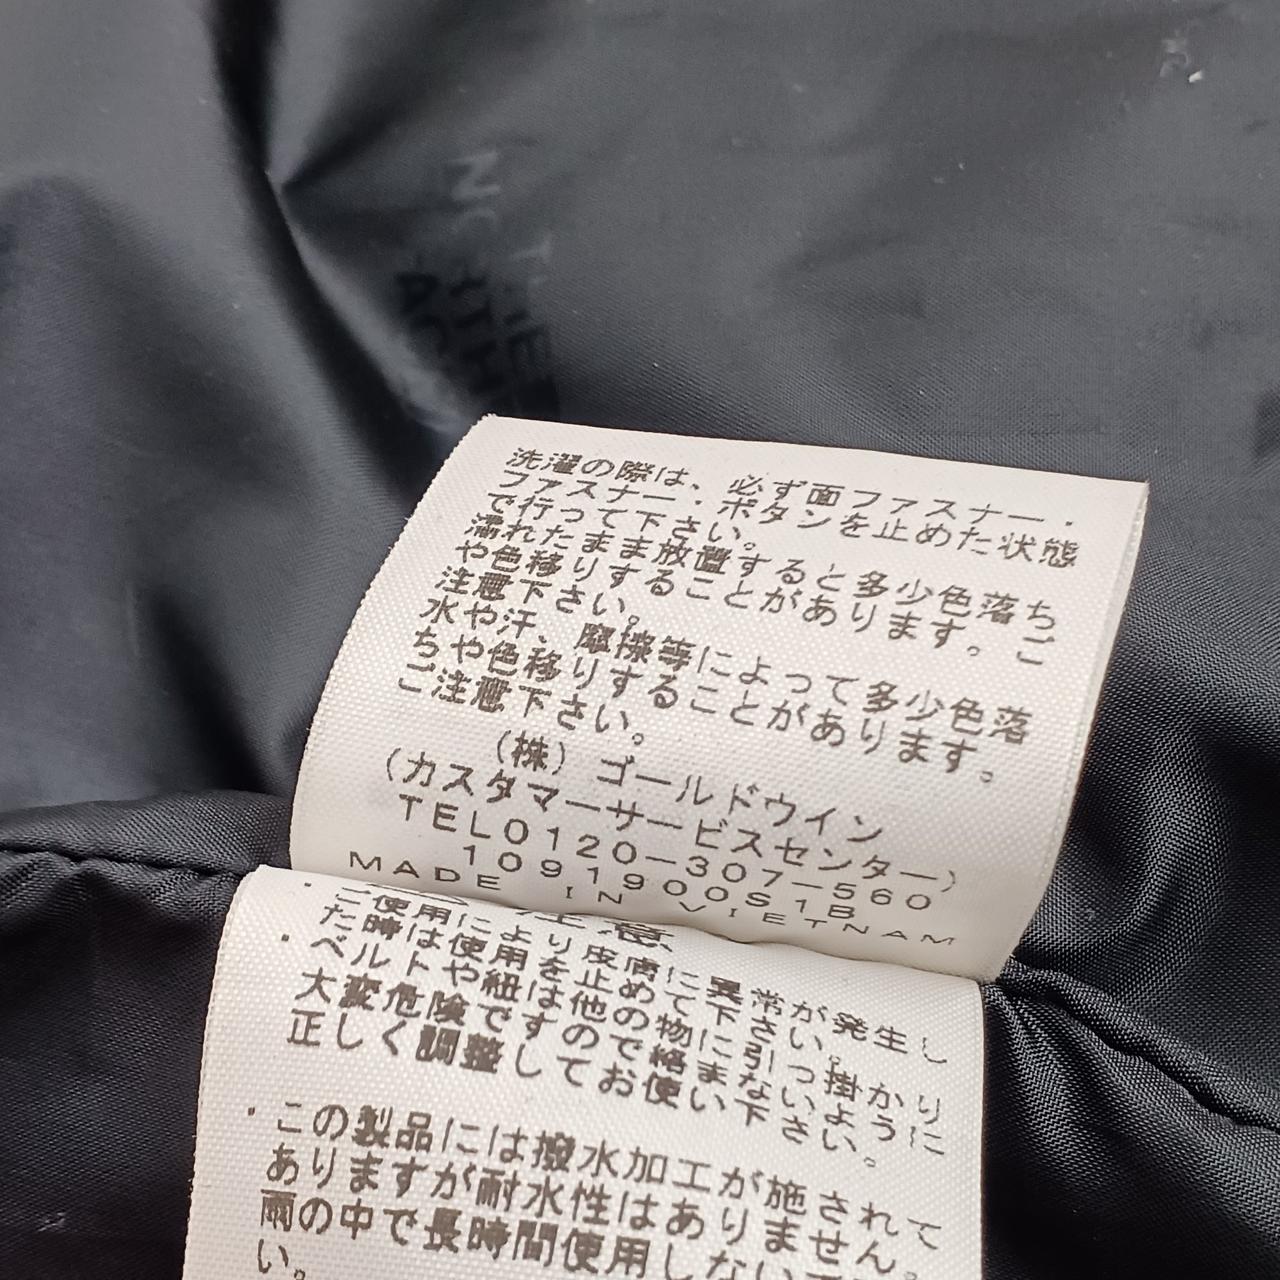 洗濯の際は、必ず面ファスナー・
ファスナー・ボタンを止めた状態
で行って下さい。
濡れたまま放置すると多少色落ち
や色移りすることがあります。ご
注意下さい。
水や汗、摩擦等によって多少色落
ちや色移りすることがあります。
ご注意下さい。
(株)ゴールドウイン
(カスタマーサービスセンター)
TEL0120-307-560
1091900S1B
MADE IN VIETNAM
注意
・ご使用により皮膚に異常が発生し
た時は使用を止めて下さい。
・ベルトや紐は他の物に引っ掛かり
大変危険ですので絡まないように
正しく調整してお使い下さい。
・この製品には撥水加工が施されて
ありますが耐水性はありません。
雨の中で長時間使用しない
い。